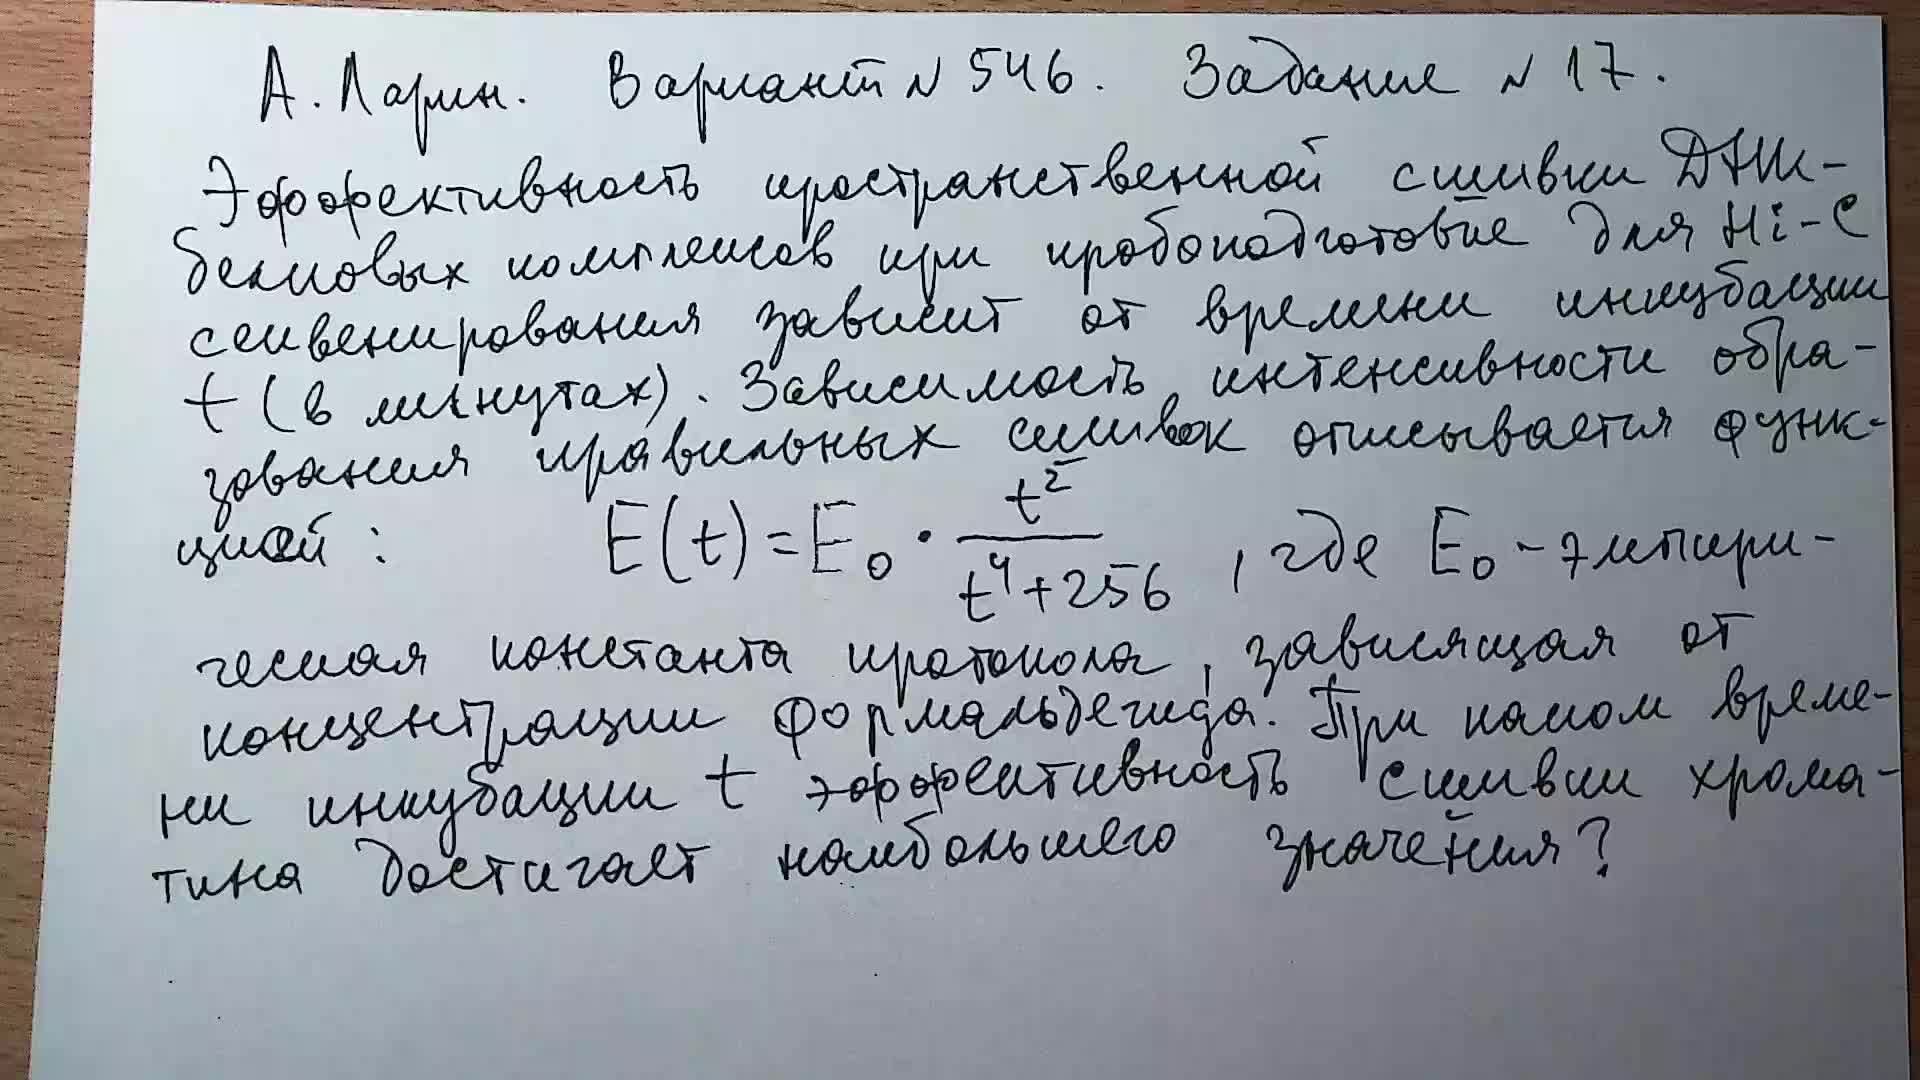 А. Ларин. Вариант № 546. Задание № 17.
Эффективность пространственной сшивки ДНК-
белковых комплексов при пробоподготовке для Hi-C
секвенирования зависит от времени инкубации
t (в минутах). Зависимость интенсивности обра-
зования правильных сшивок описывается функ-
цией: E(t) = E₀ · t²/(t⁴+256), где E₀ - эмпири-
ческая константа протокола, зависящая от
концентрации формальдегида. При каком време-
ни инкубации t эффективность сшивки хрома-
тина достигает наибольшего значения?